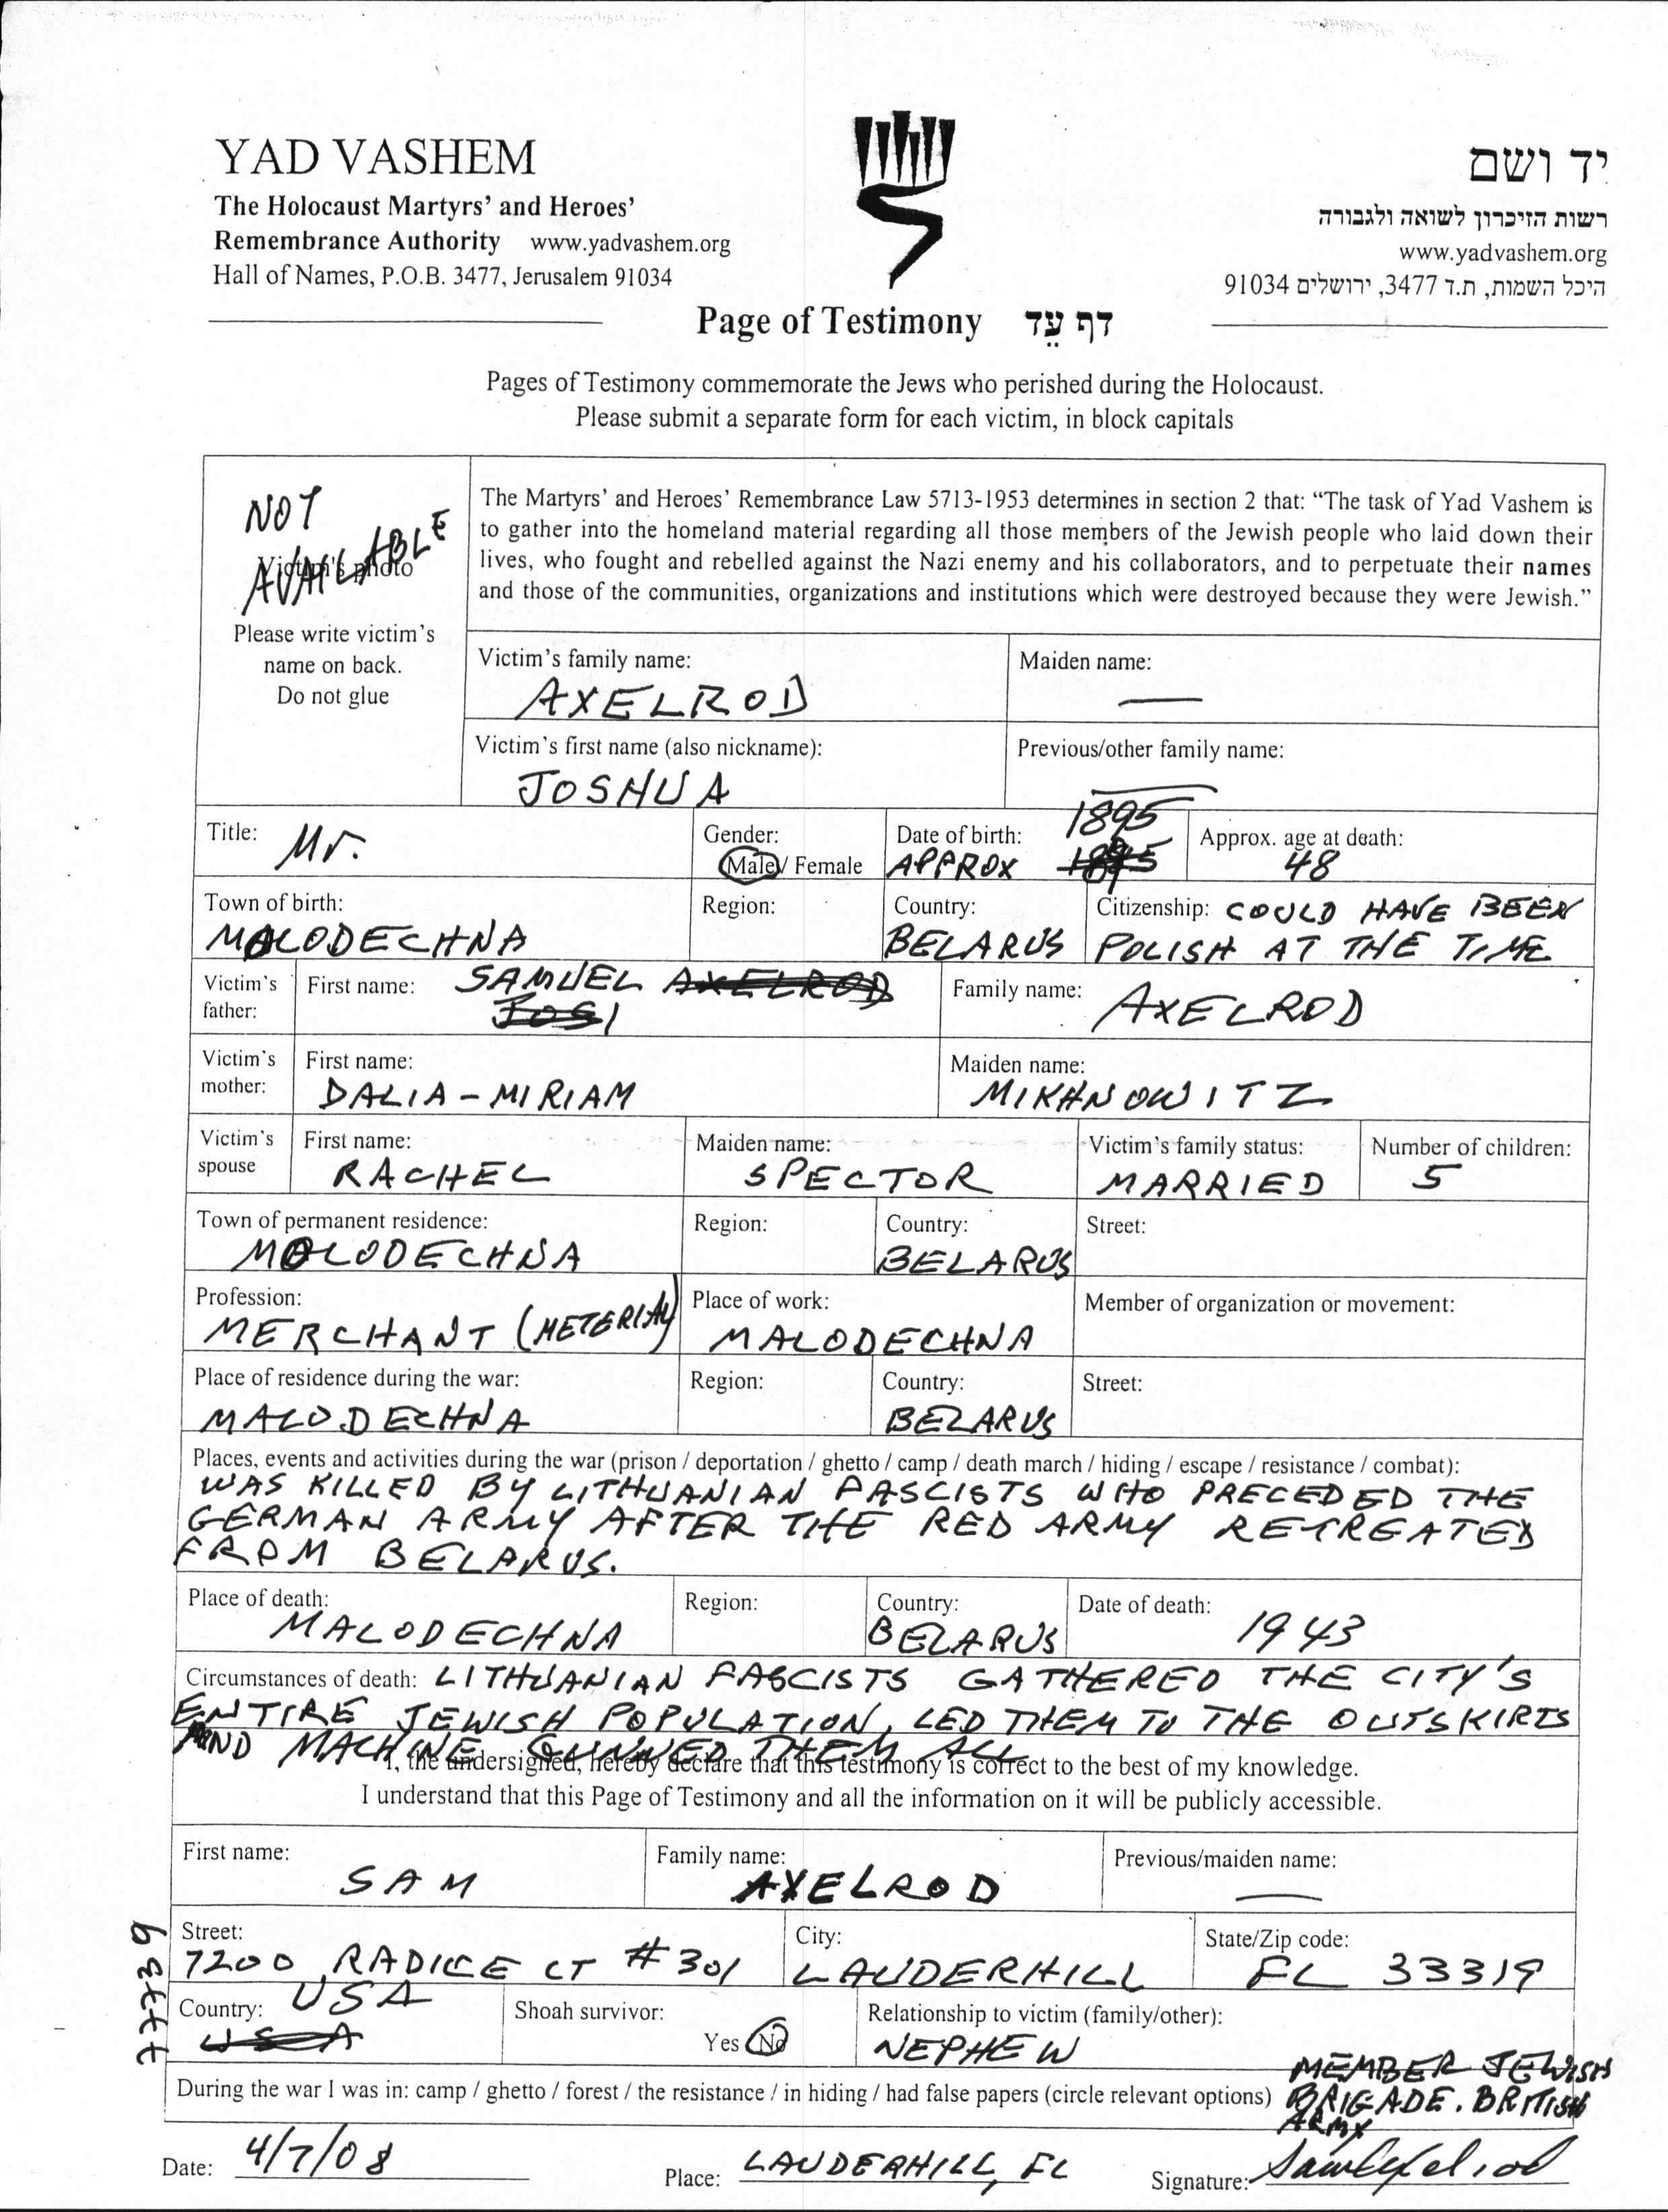 YAD VASHEM
The Holocaust Martyrs' and Heroes'
Remembrance Authority www.yadvashem.org
Hall of Names, P.O.B. 3477, Jerusalem 91034
יד ושם
רשות הזיכרון לשואה ולגבורה
www.yadvashem.org
היכל השמות, ת.ד 3477, ירושלים 91034
Page of Testimony דף עֵד
Pages of Testimony commemorate the Jews who perished during the Holocaust.
Please submit a separate form for each victim, in block capitals
NOT
AVAILABLE
Victim's photo
Please write victim's
name on back.
Do not glue
The Martyrs' and Heroes' Remembrance Law 5713-1953 determines in section 2 that: "The task of Yad Vashem is
to gather into the homeland material regarding all those members of the Jewish people who laid down their
lives, who fought and rebelled against the Nazi enemy and his collaborators, and to perpetuate their names
and those of the communities, organizations and institutions which were destroyed because they were Jewish."
Victim's family name: Maiden name:
AXELROD —
Victim's first name (also nickname): Previous/other family name:
JOSHUA —
Title: Mr. Gender: Male / Female Date of birth: APPROX 1895 Approx. age at death: 48
Town of birth: Region: Country: Citizenship: COULD HAVE BEEN
MALODECHNA BELARUS POLISH AT THE TIME
Victim's father: First name: SAMUEL AXELROD Family name: AXELROD
Victim's mother: First name: DALIA-MIRIAM Maiden name: MIKHNOWITZ
Victim's spouse First name: RACHEL Maiden name: SPECTOR Victim's family status: MARRIED Number of children: 5
Town of permanent residence: Region: Country: Street:
MOLODECHNA BELARUS
Profession: Place of work: Member of organization or movement:
MERCHANT (METERIAL) MALODECHNA
Place of residence during the war: Region: Country: Street:
MALODECHNA BELARUS
Places, events and activities during the war (prison / deportation / ghetto / camp / death march / hiding / escape / resistance / combat):
WAS KILLED BY LITHUANIAN FASCISTS WHO PRECEDED THE
GERMAN ARMY AFTER THE RED ARMY RETREATED
FROM BELARUS.
Place of death: Region: Country: Date of death:
MALODECHNA BELARUS 1943
Circumstances of death: LITHUANIAN FASCISTS GATHERED THE CITY'S
ENTIRE JEWISH POPULATION, LED THEM TO THE OUTSKIRTS
AND MACHINE GUNNED THEM ALL
I, the undersigned, hereby declare that this testimony is correct to the best of my knowledge.
I understand that this Page of Testimony and all the information on it will be publicly accessible.
First name: Family name: Previous/maiden name:
SAM AXELROD —
Street: City: State/Zip code:
7200 RADICE CT #301 LAUDERHILL FL 33319
Country: USA Shoah survivor: Relationship to victim (family/other):
USA Yes No NEPHEW
During the war I was in: camp / ghetto / forest / the resistance / in hiding / had false papers (circle relevant options)
MEMBER JEWISH
BRIGADE. BRITISH
ARMY
Date: 4/7/08 Place: LAUDERHILL, FL Signature: Sam Axelrod